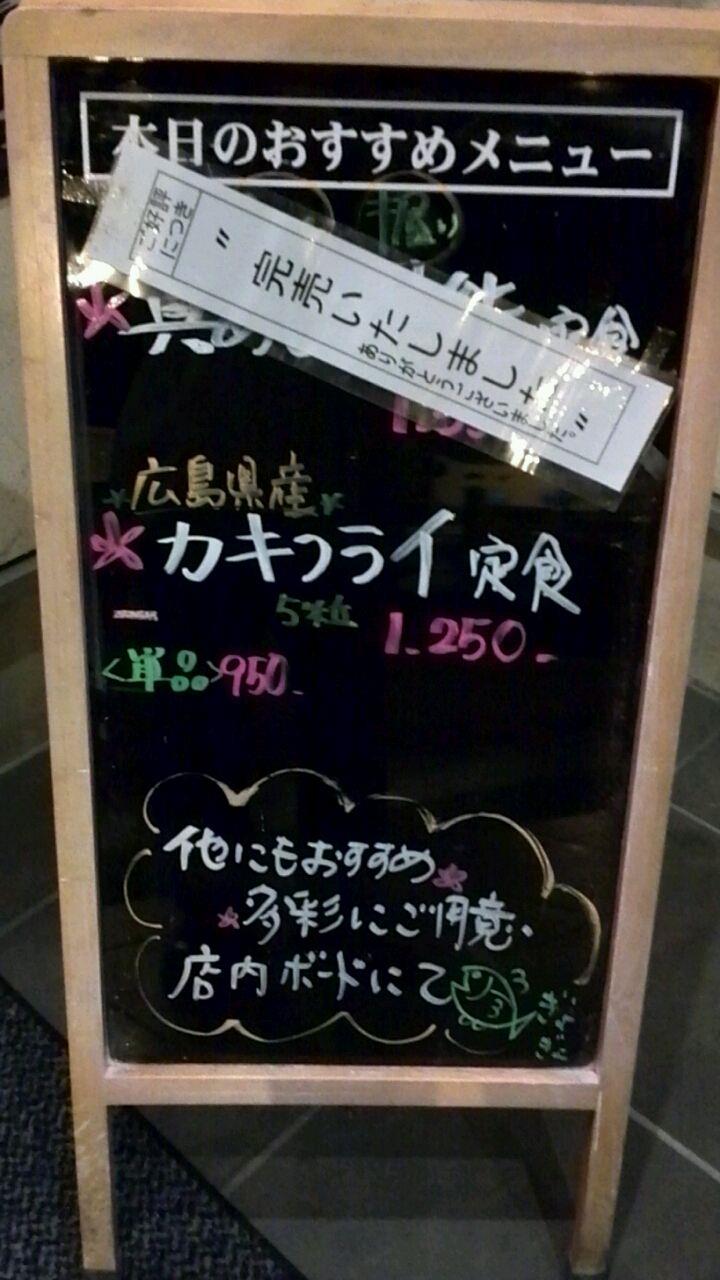 本日のおすすめメニュー
ご好評
につき
"完売いたしました"
ありがとうございました。
定食
広島県産
カキフライ定食
5粒
1.250-
<単品>950-
他にもおすすめ
多彩にご用意。
店内ボードにて